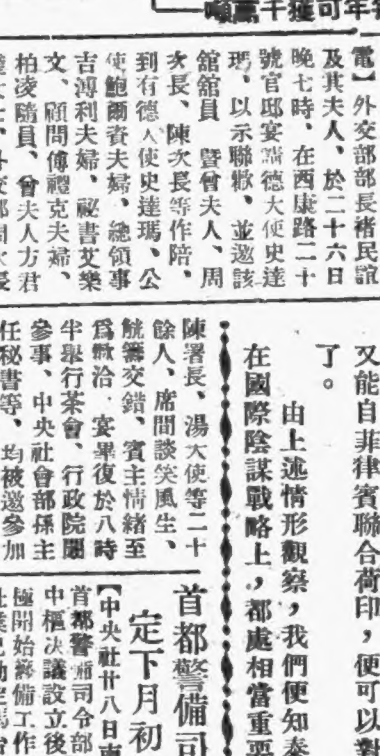 年可獲千萬噸
電】外交部部長褚民誼
及其夫人、於二十六日
晚七時、在西康路二十
號官邸宴請德大使史達
瑪、以示聯歡、並邀該
舘舘員 暨曾夫人、周
次長、陳次長等作陪、
到有德大使史達瑪、公
使鮑爾資夫婦、總領事
吉溥利夫婦、秘書艾樂
文、顧問傅禮克夫婦、
柏凌隨員、曾夫人方君
陳署長、湯大使等二十
餘人、席間談笑風生、
觥籌交錯、賓主情緒至
爲歡洽．宴畢復於八時
半舉行茶會、行政院
參事、中央社會部孫主
任秘書等、均被邀參加
又能自菲律賓聯合荷印，便可以
了。
由上述情形觀察，我們便知
在國際陰謀戰略上，都處相當重要
首都警備司
定下月初
【中央社廿八日
首都警備司令部
中樞決議設立後
極開始籌備工作